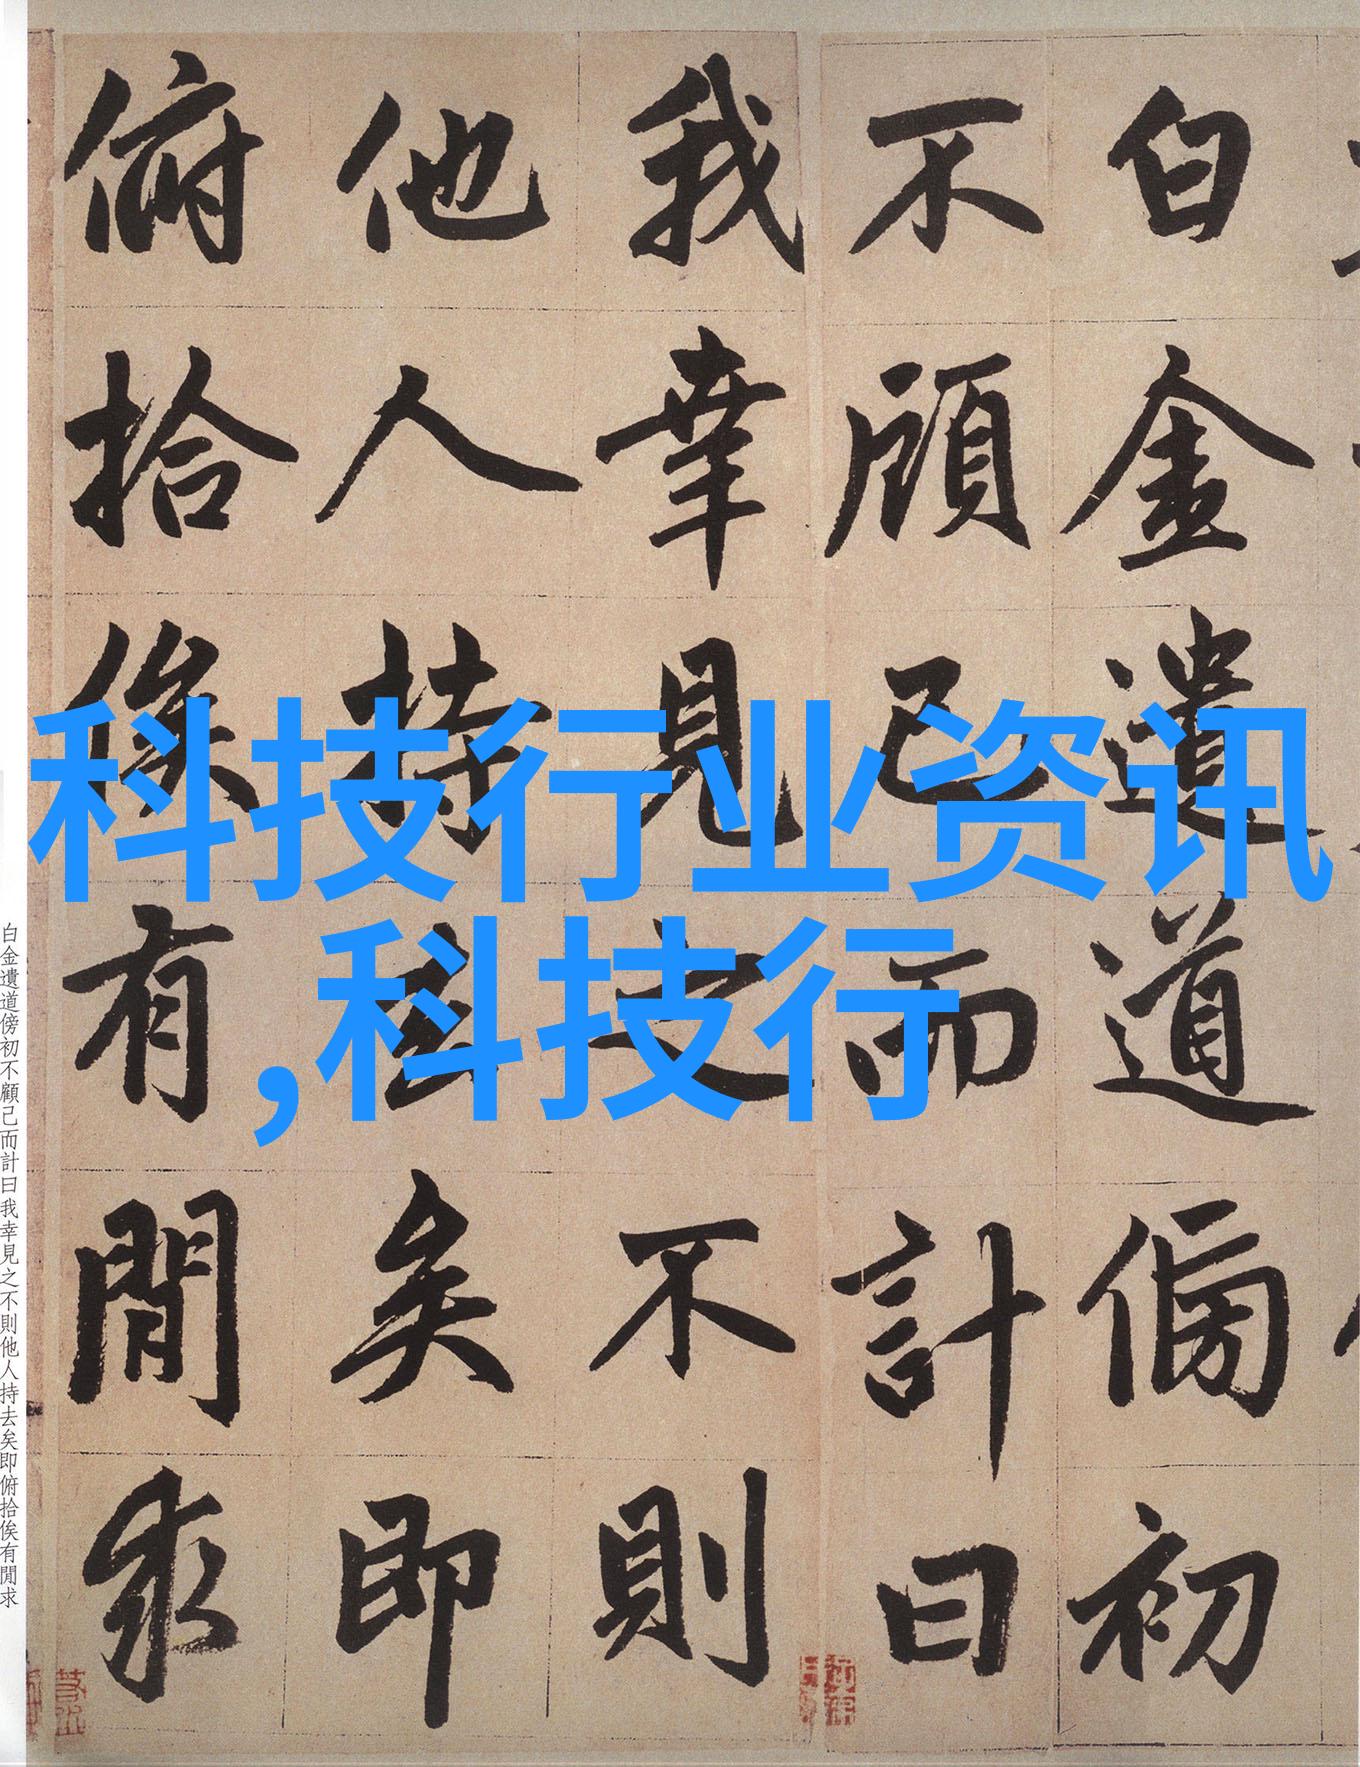 白金遺道傍初
不顧己而計曰
我幸見之不則
他人持去矣即
俯拾俟有閒求
科技行业资讯
,科技行
白金遺道傍初不顧己而計曰我幸見之不則他人持去矣即俯拾俟有閒求